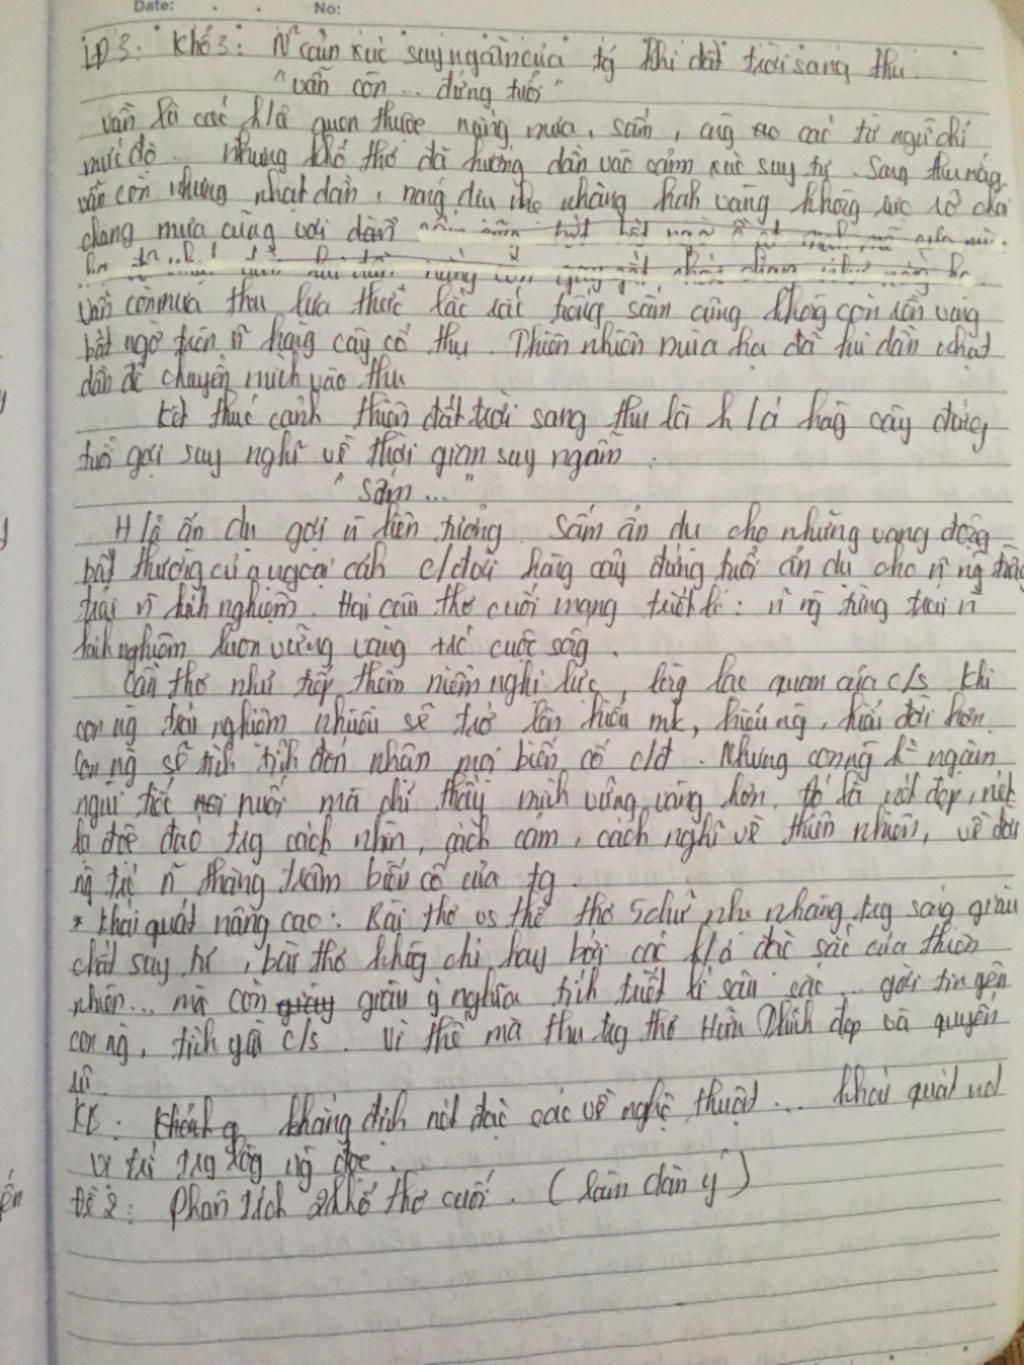 Date: . . No:
LĐ3: Khổ 3: N cảm xúc suy ngẫm của tg khi đất trời sang thu.
"vẫn còn ... đứng tuổi"
vẫn là các h/ả quen thuộc nắng mưa, sấm, cùng các từ ngữ chỉ
mức độ .. Nhưng khổ thơ đã hướng dần vào cảm xúc suy tư. Sang thu nắng
vẫn còn nhưng nhạt dần, nắng dịu nhẹ nhàng vàng không rực rỡ chói
chang mưa cũng vơi dần
vẫn còn mưa thu lưa thưa lác rác tiếng sấm cũng không còn rền vang
bất ngờ trên n hàng cây cổ thụ. Thiên nhiên mùa hạ đã từ dần nhạt
dần để chuyển mình vào thu
Kết thúc cảnh thiên đất trời sang thu là h/ả hàng cây đứng
tuổi gợi suy nghĩ về thời gian suy ngẫm.
"Sấm ..."
H/ả ẩn dụ gợi n liên tưởng. Sấm ẩn dụ cho những vang động
bất thường của ngoại cảnh c/đời hàng cây đứng tuổi ẩn dụ cho n ng từng
trải n kinh nghiệm. Hai câu thơ cuối mang triết lí: n ng từng trải n
kinh nghiệm luôn vững vàng trc cuộc sống.
Câu thơ như tiếp thêm niềm nghị lực, lòng lạc quan của c/s khi
con ng trải nghiệm nhiều sẽ trở lên hiểu mk, hiểu ng, hiểu đời hơn
con ng sẽ tĩnh đón nhận mọi biến cố c/đ. Nhưng con ng k ngậm
ngùi tiếc nuối mà chỉ thấy mình vững vàng hơn. Đó là nét đẹp, nét
độc đáo trg cách nhìn, cách cảm, cách nghĩ về thiên nhiên, về đời
ng trc n thăng trầm biến cố của tg.
* Khái quát nâng cao: Bài thơ vs thể thơ 5 chữ nhẹ nhàng trg sáng giàu
chất suy tư, bài thơ không chỉ hay bởi các h/ả đặc sắc của thiên
nhiên... mà còn giàu ý nghĩa tính triết lí sâu sắc .. gởi tin yêu
con ng, tình yêu c/s. Vì thế mà thu trg thơ Hữu Thỉnh đẹp và quyến
rũ.
KB: khẳng định nét đặc sắc về nghệ thuật ... khái quát nd
vị trí trg lòng ng đọc.
Đề 2: Phân tích 2 khổ thơ cuối. (Lâm dàn ý)